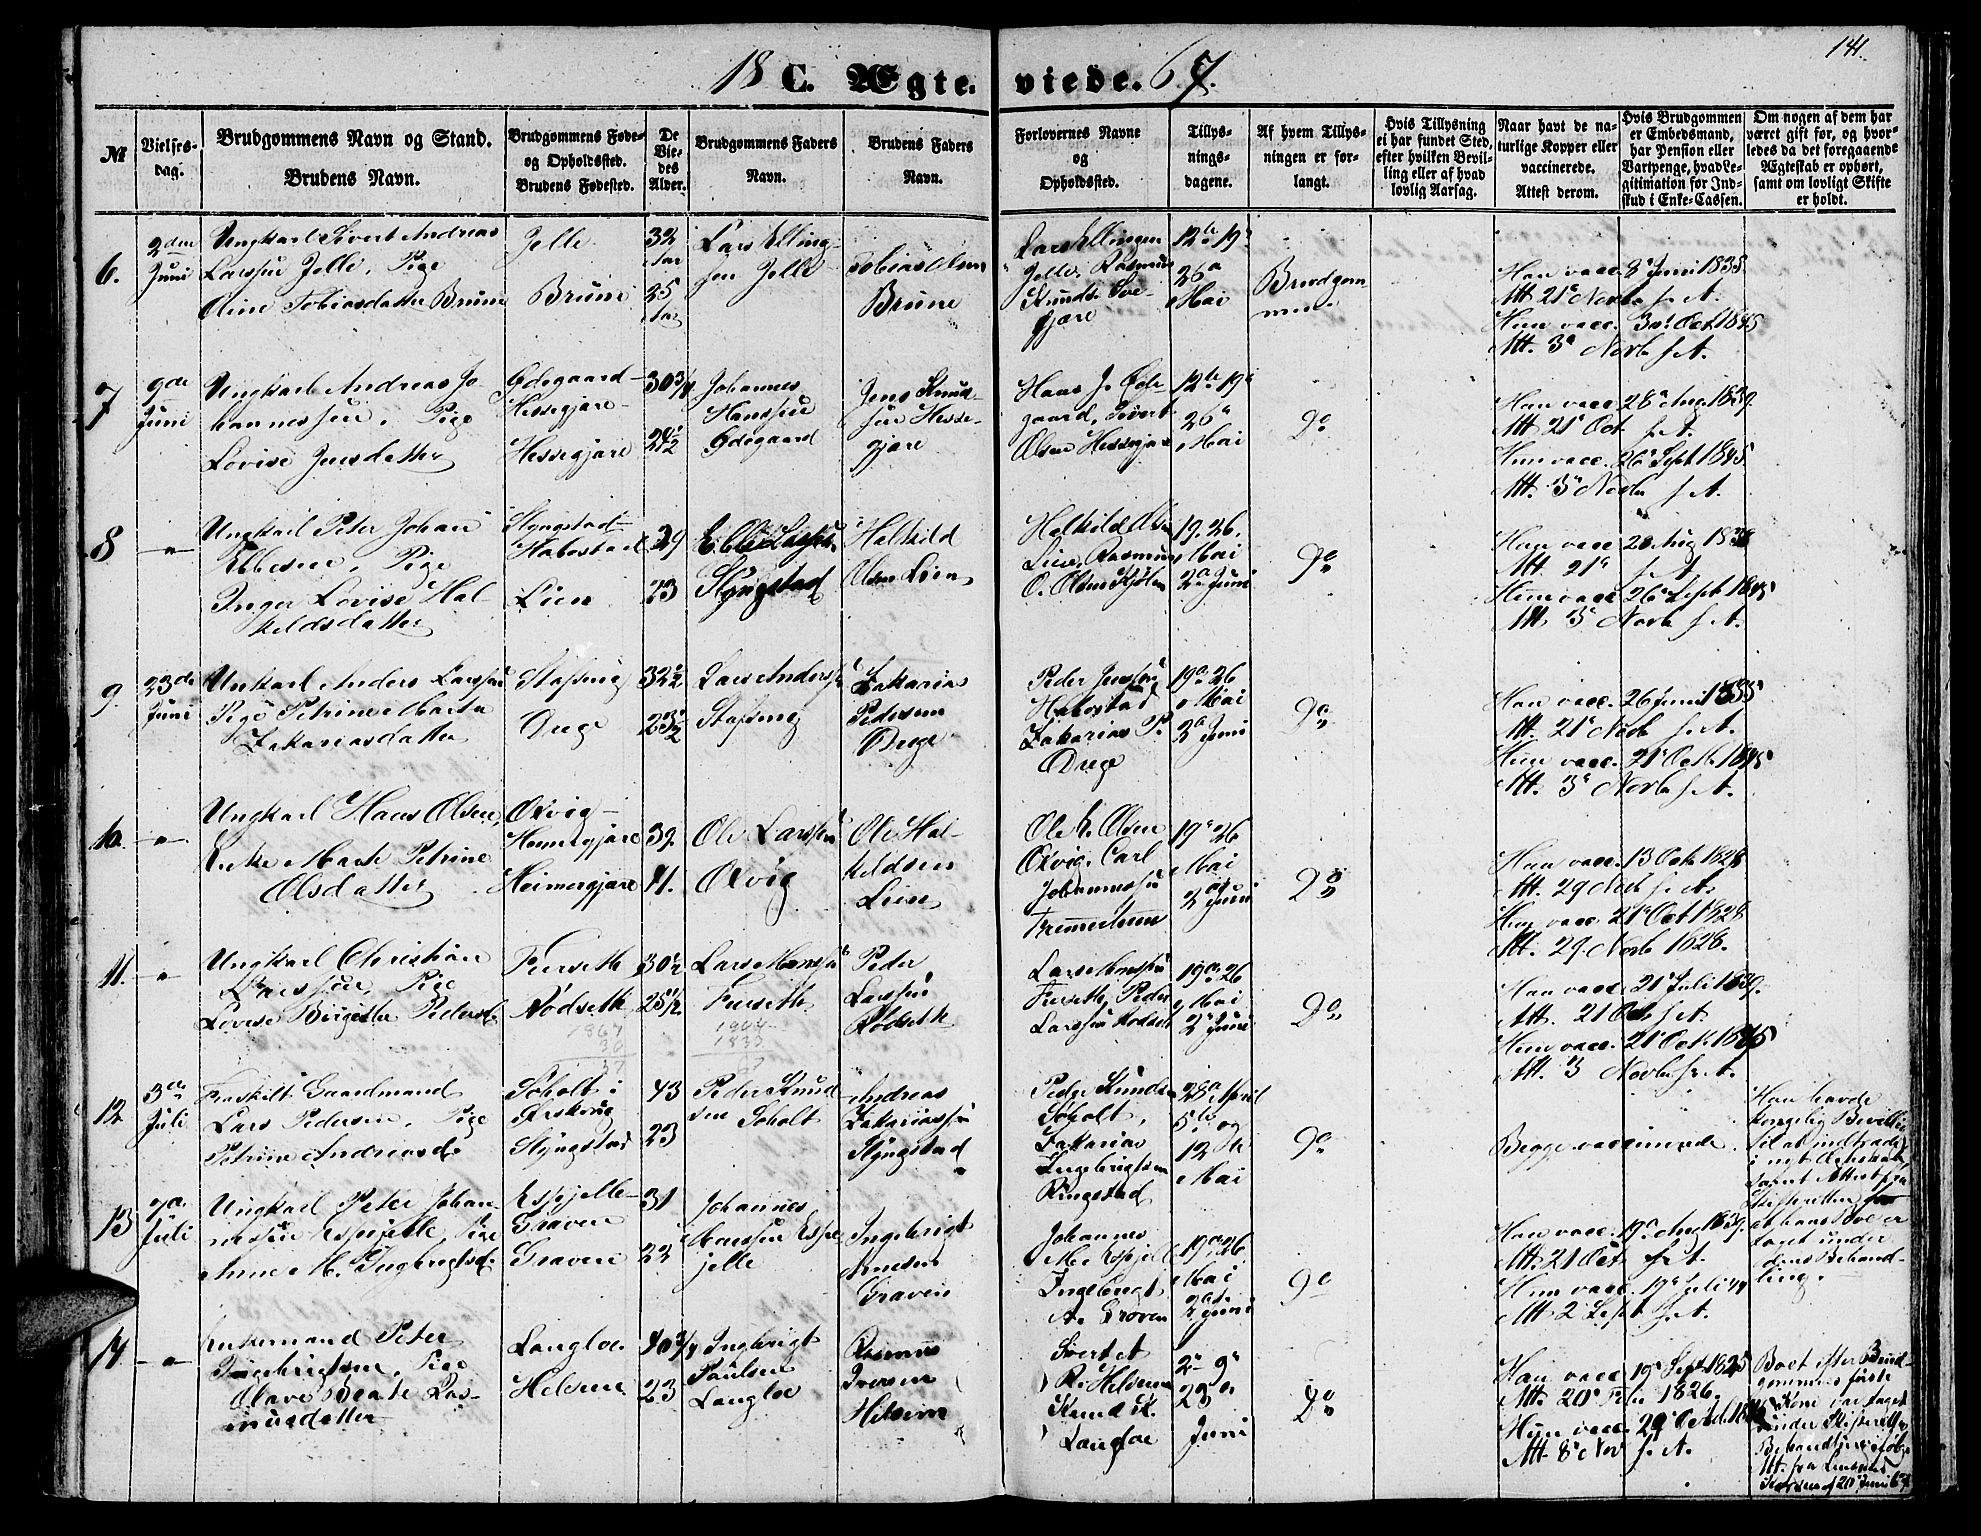 141.
18 C. Ægte- viede. 67.
№
Vielses-
dag.
Brudgommens Navn og Stand.
Brudens Navn.
Brudgommens Føde-
og Opholdssted.
Brudens Fødested.
De
Vie-
des
Alder.
Brudgommens Faders
Navn.
Brudens Faders
Navn.
Forlovernes Navne
og
Opholdssted.
Tillys-
nings-
dagene.
Af hvem Tillys-
ningen er for-
langt.
Hvis Tillysning
ei har fundet Sted,
efter hvilken Bevil-
ling eller af hvad
lovlig Aarsag.
Naar havt de na-
turlige Kopper eller
vaccinerede.
Attest derom.
Hvis Brudgommen
er Embedsmand,
har Pension eller
Vartpenge, hvad Le-
gitimation for Ind-
skud i Enke-Cassen.
Om nogen af dem har
været gift før, og hvor-
ledes da det foregaaende
Ægteskab er ophørt,
samt om lovligt Skifte
er holdt.
6.
2den
Juni
Ungkarl Sivert Andreas
Larssen Jelle, Pige
Oline Tobiasdatter Brune
Jelle
Brune
32
Aar
25
Aar
Lars Elling-
sen Jelle
Tobias Olsen
Brune
Lars Ellingsen
Jelle, Rasmus
Knuds.
gjære
12te 19
26
Mai
Brudgom-
men
Han vacc. 8 Juni 1835
Att 21 Novb s. A.
Hun vacc. 30 Oct 1845
Att. 3 Novb s. A.
7
9de
Juni
Ungkarl Andreas Jo-
hannessen, Pige
Lovise Jensdatter
Ødegaard-
Hessegjære
Hessegjære
30 3/4
24 1/2
Johannes
Hanssen
Ødegaard
Jens Knud-
sen Hesse-
gjære
Hans J. Øde-
gaard, Sivert
Olsen Hessegjære
12te 19
26
Mai
Do
Han vacc 28 Aug 1839.
Att 21 Oct s. A.
Hun vacc. 26 Sept 1845
Att. 3 Novb s. A.
8
-"-
Ungkarl Peter Johan
Ebbesen, Pige
Inger Lovise Hal-
keldsdatter
Slyngstad-
Habostad
Lien
29
23
Ebbe Larssen
Slyngstad
Halkild
Olsen Lien
Halkild Olsen
Lien, Rasmus
O. Olsen
19. 26.
Mai
2 Juni
Do
Han vacc 28 Aug 1838
Att. 21 s. A.
Hun vacc 26 Sept 1845
Att 3 Novb s. A.
9.
23de
Juni
Ungkarl Anders Larssen
Pige Petrine Marta
Zakariasdatter
Stafseng
Drege
32 1/2
23 1/2
Lars Anderssen
Stafseng
Zakarias
Pedersen
Drege
Peder Jenssen
Habostad
Zakarias P.
Drege
19 26
Mai
2 Juni
Do
Han vacc. 26 Juni 1835
Att. 21 Novb s. A.
Hun vacc. 21 Octb 1845
Att. 3 Novb s. A.
10.
-"-
Ungkarl Hans Olsen,
Enke Marte Petrine
Olsdatter
Oxvig-
Heimergjære
Heimergjære
39.
41.
Ole Larssen
Oxvig
Ole Hal-
keldsen
Lien
Ole L. Olsen
Oxvig, Carl
Johannessen
19 26
Mai
2 Juni
Do
Han vacc. 13 Octb 1828
Att. 29 Novb s. A.
Hun vacc 21 Oct 1828
Att. 29 Novb 1828.
11.
-"-
Ungkarl Christian
Larssen, Pige
Lovise Birgitta Pedersd.
Furseth
Rødseth
30 1/2
25 1/2
Lars Monssen
Furseth
Peder
Larssen
Rødseth
Lars Monssen
Furseth, Peder
Larssen Rødseth
19 26
Mai
2 Juni
Do
Han vacc. 21 Juli 1839.
Att. 21 Octb s. A.
Hun vacc. 21 Octb 1845
Att. 3 Novb s. A.
12
3de
Juli
Fraskilt Gaardmand
Lars Pedersen, Pige
Petrine Andreasd.
Søholt i
Ørskoug
Slyngstad
43
23
Peder Knud-
sen Søholt
Andreas
Zakariassen
Slyngstad
Peder Knudsen
Søholt,
Zakarias
Ingebrigtsen
Ringstad
28 April
5te og
12te
Mai
Do
Begge vaccinerede.
Han havde
kongelig Bevilling
til at indtræde
i nyt Ægteskab
samt Attest fra
Skifteretten
at hans Boe er
taget under
dens Behand-
ling.
13
7de
Juli
Ungkarl Peter Johan-
nessen Espjelle, Pige
Anne M. Ingebrigtsd.
Espjelle-
Graven
Graven
31
22
Johannes
Hanssen Espe-
jelle
Ingebrigt
Arnesen
Graven
Johannes
Espjelle
Ingebrigt
A. Graven
19 26
Mai
2 Juni
Do
Han vacc. 19 Aug 1839.
Att. 21 Oct s. A.
Hun vacc. 19 Juli 44
Att. 2 Sept s. A.
14
-"-
Enkemand Peter
Ingebrigtsen, Pige
Olave Beate Ras-
musdatter
Langloe
Helseen
40 3/4
23
Ingebrigt
Paulsen
Langloe
Rasmus
Iversen
Helseen
Sivert
R. Helseen
Knud K.
Langloe
2 9
23
Juni
Do
Han vacc. 19 Sept 1825
Att. 20 1826.
Hun vacc. 29 Octb
Att. 8 Nov s. A.
Boet efter Brud-
gommens første
Kone
under Skifterettens
Behandling ifølge
Att. fra
20 Juni 67.
1867
30
37
1904
1837